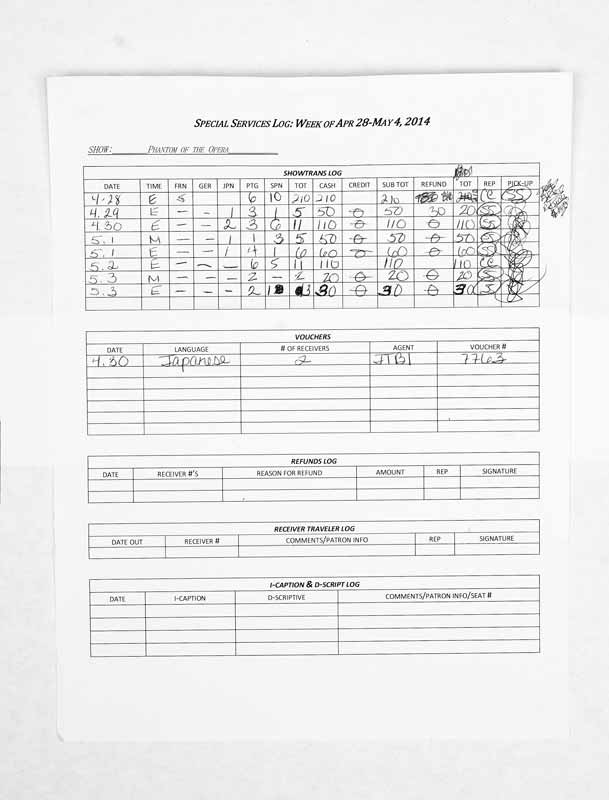 SPECIAL SERVICES LOG: WEEK OF APR 28-MAY 4, 2014
SHOW: PHANTOM OF THE OPERA
SHOWTRANS LOG
DATE TIME FRN GER JPN PTG SPN TOT CASH CREDIT SUB TOT REFUND TOT REP PICK-UP
4.28 E 5 6 10 210 210 210 CC SS
4.29 E — — 1 3 1 5 50 0 50 30 20 SS
4.30 E — — 2 3 6 11 110 0 110 0 110 SS
5.1 M — — 1 1 3 5 50 0 50 0 50 SS
5.1 E — — 1 4 1 6 60 0 60 0 60 SS
5.2 E — — — 6 5 11 110 110 110 CC
5.3 M — — — 2 — 2 20 0 20 0 20 SS
5.3 E — — — 2 1 3 30 0 30 0 30 S
VOUCHERS
DATE LANGUAGE # OF RECEIVERS AGENT VOUCHER #
4.30 Japanese 2 JTBI 7763
REFUNDS LOG
DATE RECEIVER #'S REASON FOR REFUND AMOUNT REP SIGNATURE
RECEIVER TRAVELER LOG
DATE OUT RECEIVER # COMMENTS/PATRON INFO REP SIGNATURE
I-CAPTION & D-SCRIPT LOG
DATE I-CAPTION D-SCRIPTIVE COMMENTS/PATRON INFO/SEAT #